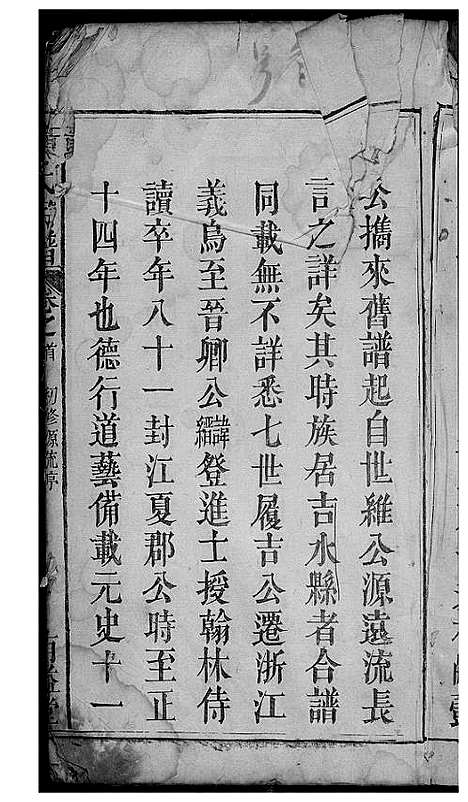 公攜來舊譜起自世維公源遠流長
言之詳矣其時族居吉水縣者合譜
同載無不詳悉七世履吉公遷浙江
義烏至晉卿公諱溍登進士授翰林侍
讀卒年八十一封江夏郡公時至正
十四年也德行道藝備載元史十一
卷之首 初修源流序